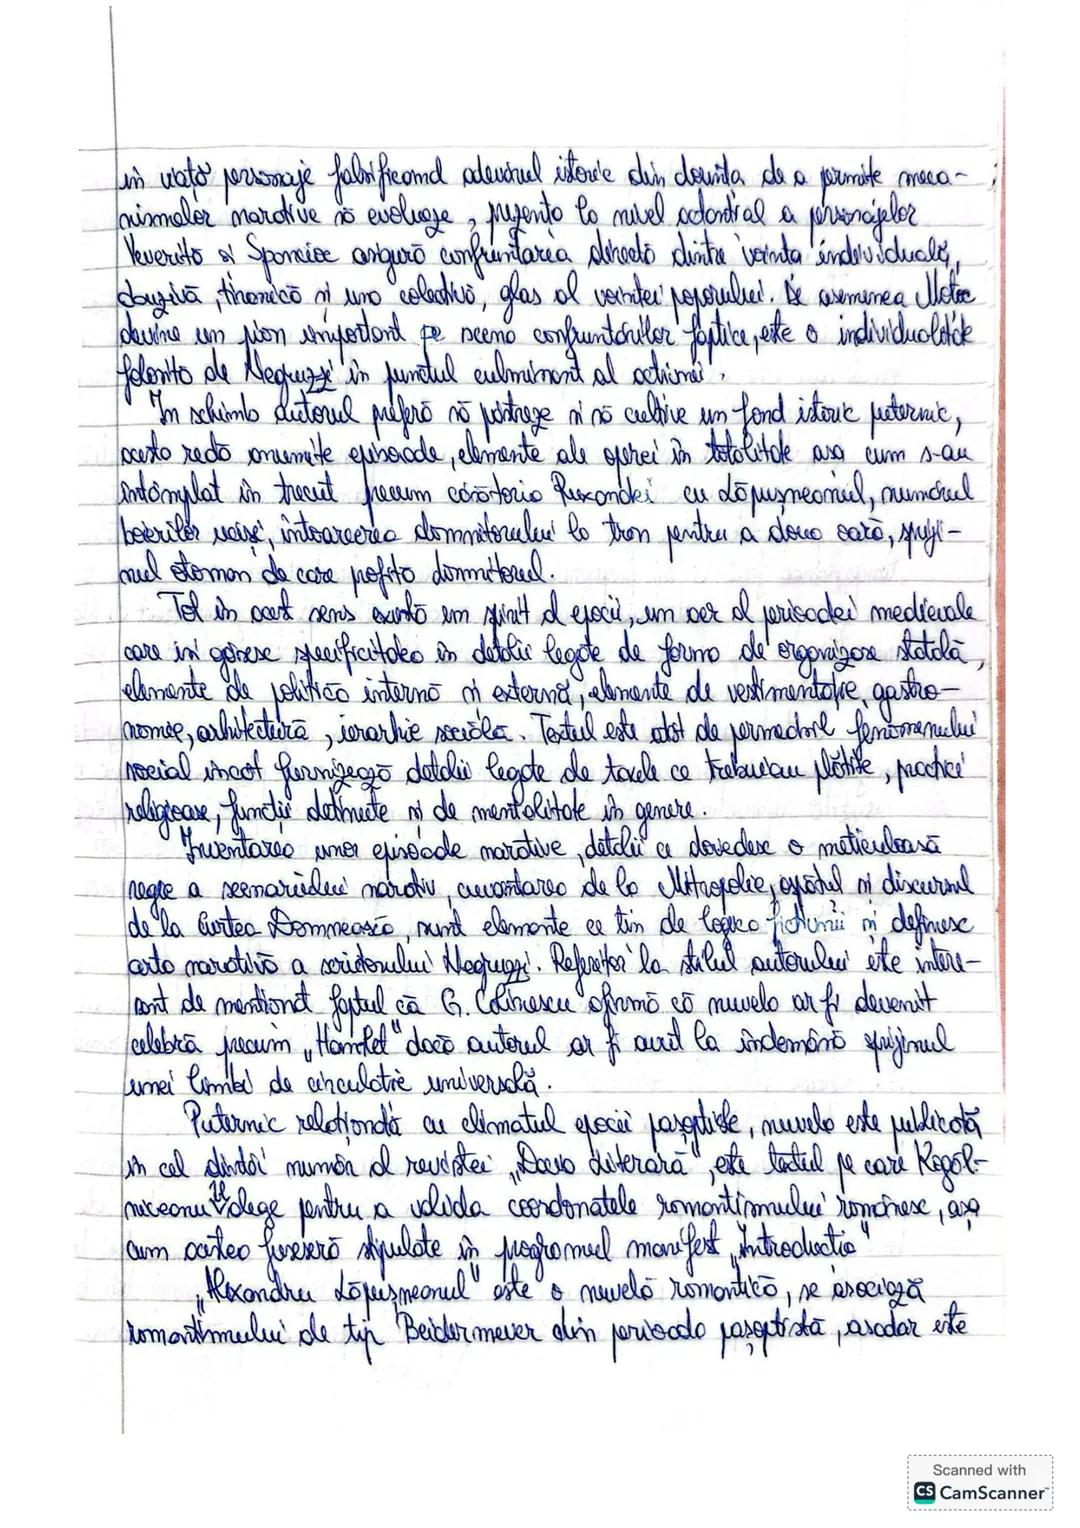 în viață personaje falsificând adevărul istoric din dorința de a permite meca-
nismelor narative să evolueze, prezența la nivel actanțial a personajelor
Veveriță și Spancioc asigură confruntarea directă dintre voința individuală,
abuzivă, tiranică și una colectivă, glas al voinței poporului. De asemenea Motoc
devine un pion important pe scena confruntărilor faptice, este o individualitate
folosită de Negruzzi în punctul culminant al acțiunii.
În schimb autorul preferă să păstreze și să cultive un fond istoric puternic,
acesta redă anumite episoade, elemente ale operei în totalitate așa cum s-au
întâmplat în trecut precum căsătoria Ruxandei cu Lăpușneanul, numărul
boierilor uciși, întoarcerea domnitorului la tron pentru a doua oară, spriji-
nul otoman de care profita domnitorul.
Tot în acest sens există un spirit al epocii, un aer al perioadei medievale
care își găsesc specificitatea în detalii legate de forma de organizare statală,
elemente de politică internă și externă, elemente de vestimentație, gastro-
nomie, arhitectură, ierarhie socială. Textul este atât de permeabil fenomenului
social încât furnizează detalii legate de taxele ce trebuiau plătite, practici
religioase, funcții deținute și de mentalitate în genere.
Inventarea unor episoade narative, detalii ce dovedesc o meticuloasă
regie a scenariului narativ, cuvântarea de la Mitropolie, ospățul și discursul
de la Curtea Domnească, sunt elemente ce țin de logica ficțiunii și definesc
arta narativă a scriitorului Negruzzi. Referitor la stilul autorului este intere-
sant de menționat faptul că G. Călinescu afirmă că nuvela ar fi devenit
celebră precum „Hamlet" dacă autorul ar fi avut la îndemână sprijinul
unei limbi de circulație universală.
Puternic relaționată cu climatul epocii pașoptiste, nuvela este publicată
în cel dintâi număr al revistei „Dacia Literară", este textul pe care Kogăl-
niceanu îl alege pentru a valida coordonatele romantismului românesc, așa
cum acestea fuseseră stipulate în programul manifest „Introducție"
„Alexandru Lăpușneanul" este o nuvelă romantică, se asociază
romantismului de tip Beidermeier din perioada pașoptistă, așadar este
Scanned with
CS CamScanner